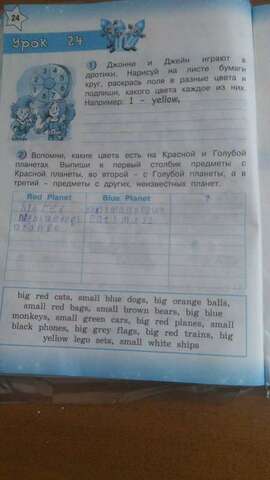 24
Урок 24
1) Джонни и Джейн играют в
дротики. Нарисуй на листе бумаги
круг, раскрась поля в разные цвета и
подпиши, какого цвета каждое из них.
Например: 1 – yellow,
2) Вспомни, какие цвета есть на Красной и Голубой
планетах. Выпиши в первый столбик предметы с
Красной планеты, во второй – с Голубой планеты, а в
третий – предметы с других, неизвестных планет.
Red Planet Blue Planet ?
big red cats, small blue dogs, big orange balls,
small red bags, small brown bears, big blue
monkeys, small green cars, big red planes, small
black phones, big grey flags, big red trains, big
yellow lego sets, small white ships